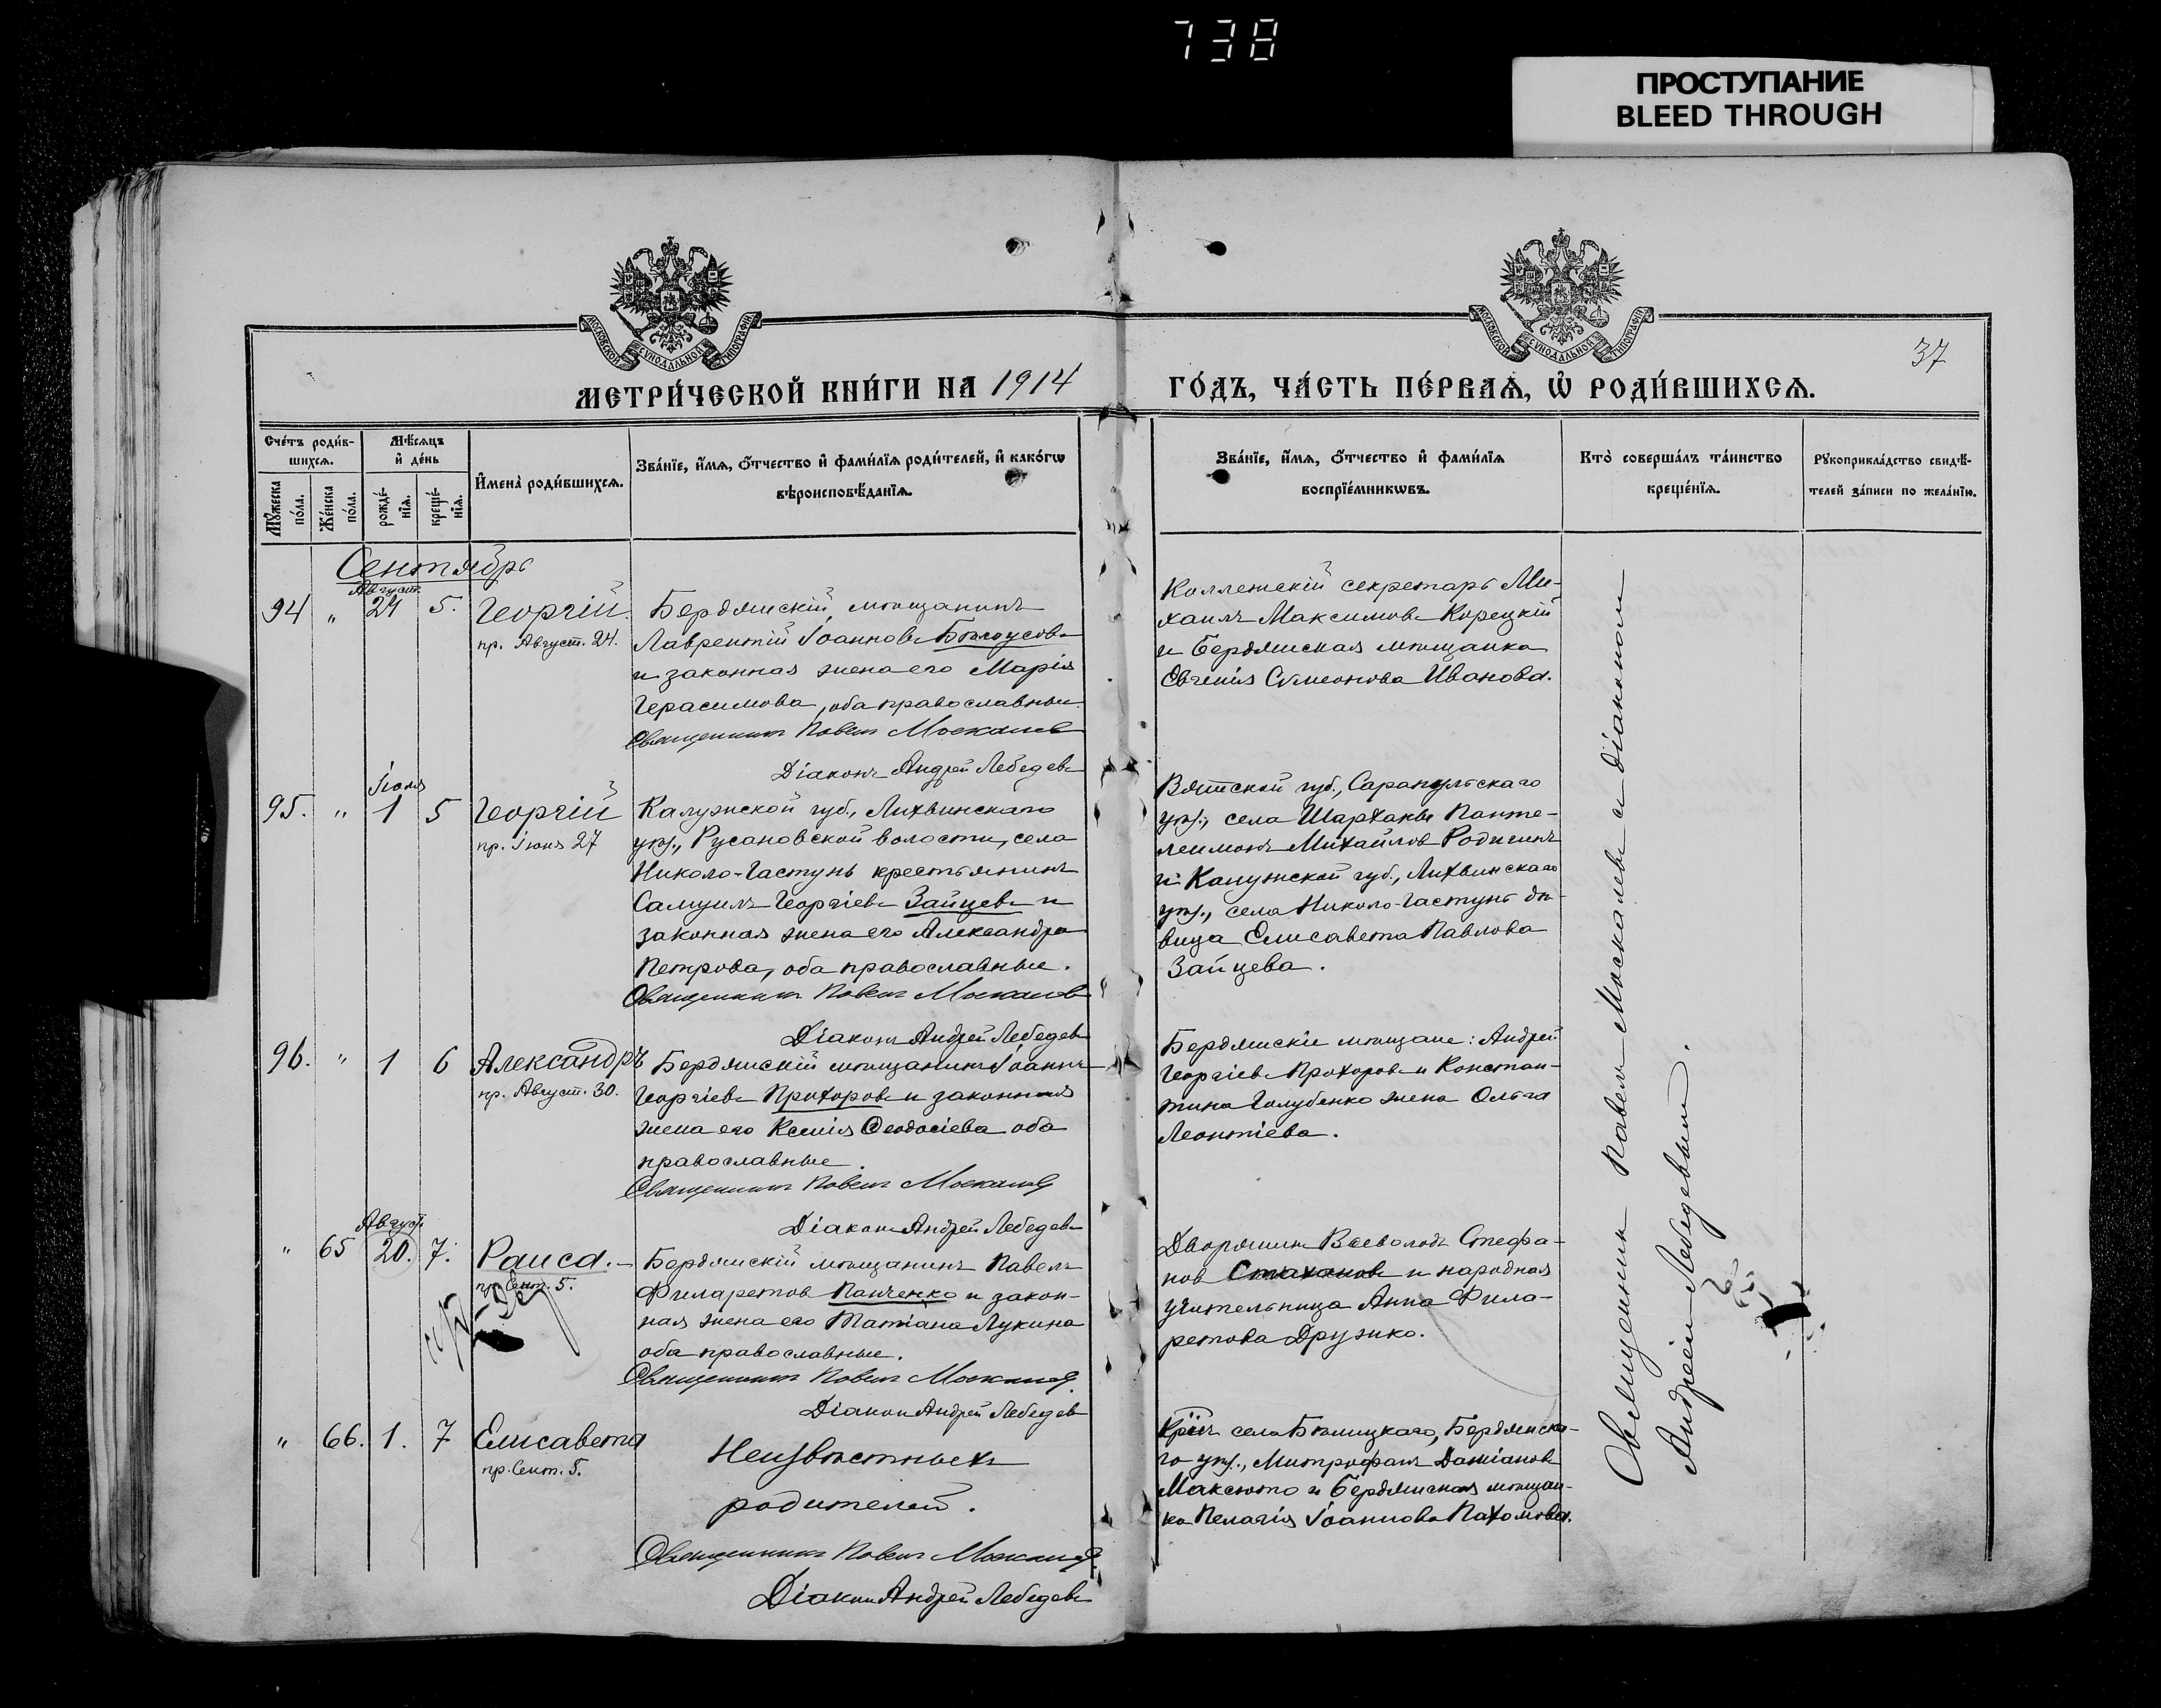 738
ПРОСТУПАНИЕ
BLEED THROUGH
МОСКОВСКОЙ СѴНОДАЛЬНОЙ ТИПОГРАФІИ
МОСКОВСКОЙ СѴНОДАЛЬНОЙ ТИПОГРАФІИ
37
МЕТРИ́ЧЕСКОЙ КНИ́ГИ НА 1914
ГО́ДЪ, ЧА́СТЬ ПЕ́РВАѦ, Ѡ҆ РОДИ́ВШИХСѦ.
Сче́тъ роди́в-
шихсѧ.
Мѣ́сѧцъ
и҆ де́нь
Мꙋ́жеска
по́ла.
Же́нска
по́ла.
рожде́-
нїѧ.
креще́-
нїѧ.
И҆мена̀ роди́вшихсѧ.
Зва́нїе, и҆́мѧ, ѻ҆́тчество и҆ фами́лїѧ роди́телей, и҆ како́гѡ
вѣроисповѣ́данїѧ.
Зва́нїе, и҆́мѧ, ѻ҆́тчество и҆ фами́лїѧ
воспрїе́мникѡвъ.
Кто̀ соверша́лъ та́инство
креще́нїѧ.
Рꙋкоприкла́дство свидѣ́-
телей за́писи по жела́нїю.
Сентябрь
Август.
94 " 24 5. Георгій.
пр. Август. 24.
Бердянскій мѣщанинъ
Лаврентій Іоанновъ Бѣлоусовъ
и законная жена его Марія
Герасимова, оба православные.
Священникъ Павелъ Москалевъ
Діаконъ Андрей Лебедевъ
Коллежскій секретарь Ми-
хаилъ Максимовъ Корецкій
и Бердянская мѣщанка
Евгенія Сѵмеонова Иванова.
Іюня
95. " 1 5 Георгій
пр. Іюня 27
Калужской губ., Лихвинскаго
уѣз., Русановской волости, села
Николо-Гастунь крестьянинъ
Самуилъ Георгіевъ Зайцевъ и
законная жена его Александра
Петрова, оба православные.
Священникъ Павелъ Москалевъ
Діаконъ Андрей Лебедевъ
Вятской губ., Сарапульскаго
уѣз., села Шарканъ Панте-
леимонъ Михайловъ Родигинъ
и Калужской губ., Лихвинскаго
уѣз., села Николо-Гастунь дѣ-
вица Елисавета Павлова
Зайцева.
96. " 1 6 Александръ
пр. Август. 30.
Бердянскій мѣщанинъ Іоаннъ
Георгіевъ Прохоровъ и законная
жена его Ксенія Ѳеодосіева оба
православные.
Священникъ Павелъ Москалевъ
Діаконъ Андрей Лебедевъ
Бердянскіе мѣщане: Андрей
Георгіевъ Прохоровъ и Констан-
тина Голубенко жена Ольга
Леонтіева.
Август.
" 65 20. 7. Раиса.
пр. Сент. 5.
Бердянскій мѣщанинъ Павелъ
Филаретовъ Панченко и закон-
ная жена его Татіана Лукина
оба православные.
Священникъ Павелъ Москалевъ
Діаконъ Андрей Лебедевъ
Дворянинъ Всеволодъ Стефа-
новъ Стахановъ и народная
учительница Анна Фила-
ретова Дружко.
" 66. 1. 7 Елисавета
пр. Сент. 5.
Неизвѣстныхъ
родителей.
Священникъ Павелъ Москалевъ
Діаконъ Андрей Лебедевъ
Крнъ села Бѣлицкаго, Бердянска-
го уѣз., Митрофанъ Даміановъ
Максюто и Бердянская мѣщан-
ка Пелагія Іоаннова Пахомова.
Священникъ Павелъ Москалевъ и діакономъ
Андреемъ Лебедевымъ.